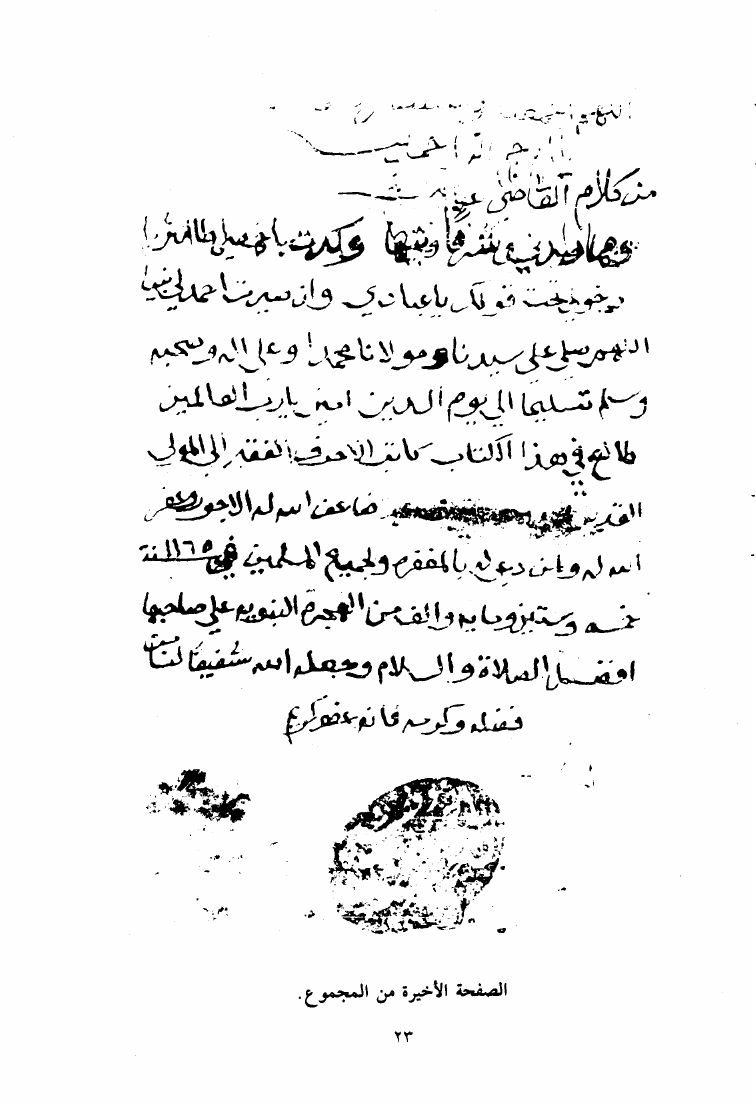 من كلام القاضي عياض
ومما زادني شرفا وتيها وكدت بأخمصي طا الثريا
دخولي تحت قولك يا عبادي وان صيرت احمد لي نبيا
اللهم صلي على سيدنا ومولانا محمدا وعلى اله وصحبه
وسلم تسليما الى يوم الدين امين يارب العالمين
طالع في هذا الكتاب كاتب الاحرف الفقير الى المولى
القدير ضاعف الله له الاجور وغفر
الله له ولمن دعى له بالمغفره ولجميع المسلمين في ١١٦٥ سنة
خمسه وستين ومايه والف من الهجرة النبويه على صاحبها
افضل الصلاة والسلام وجعله الله شفيقا لنا من
فضله وكرمه فانه عفو كريم
الصفحة الأخيرة من المجموع.
٢٣